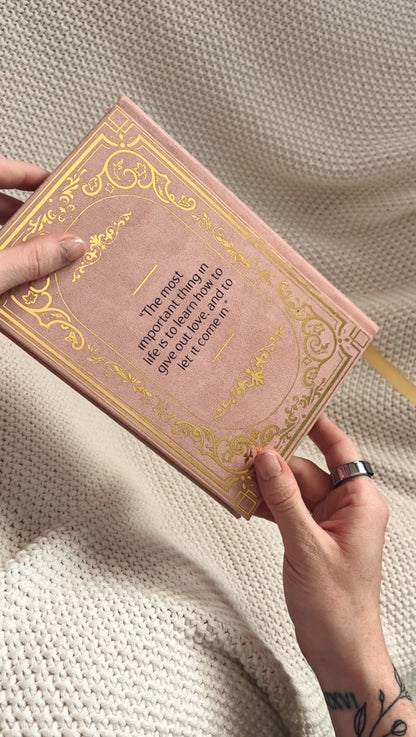 "The most
important thing in
life is to learn how to
give out love, and to
let it come in "